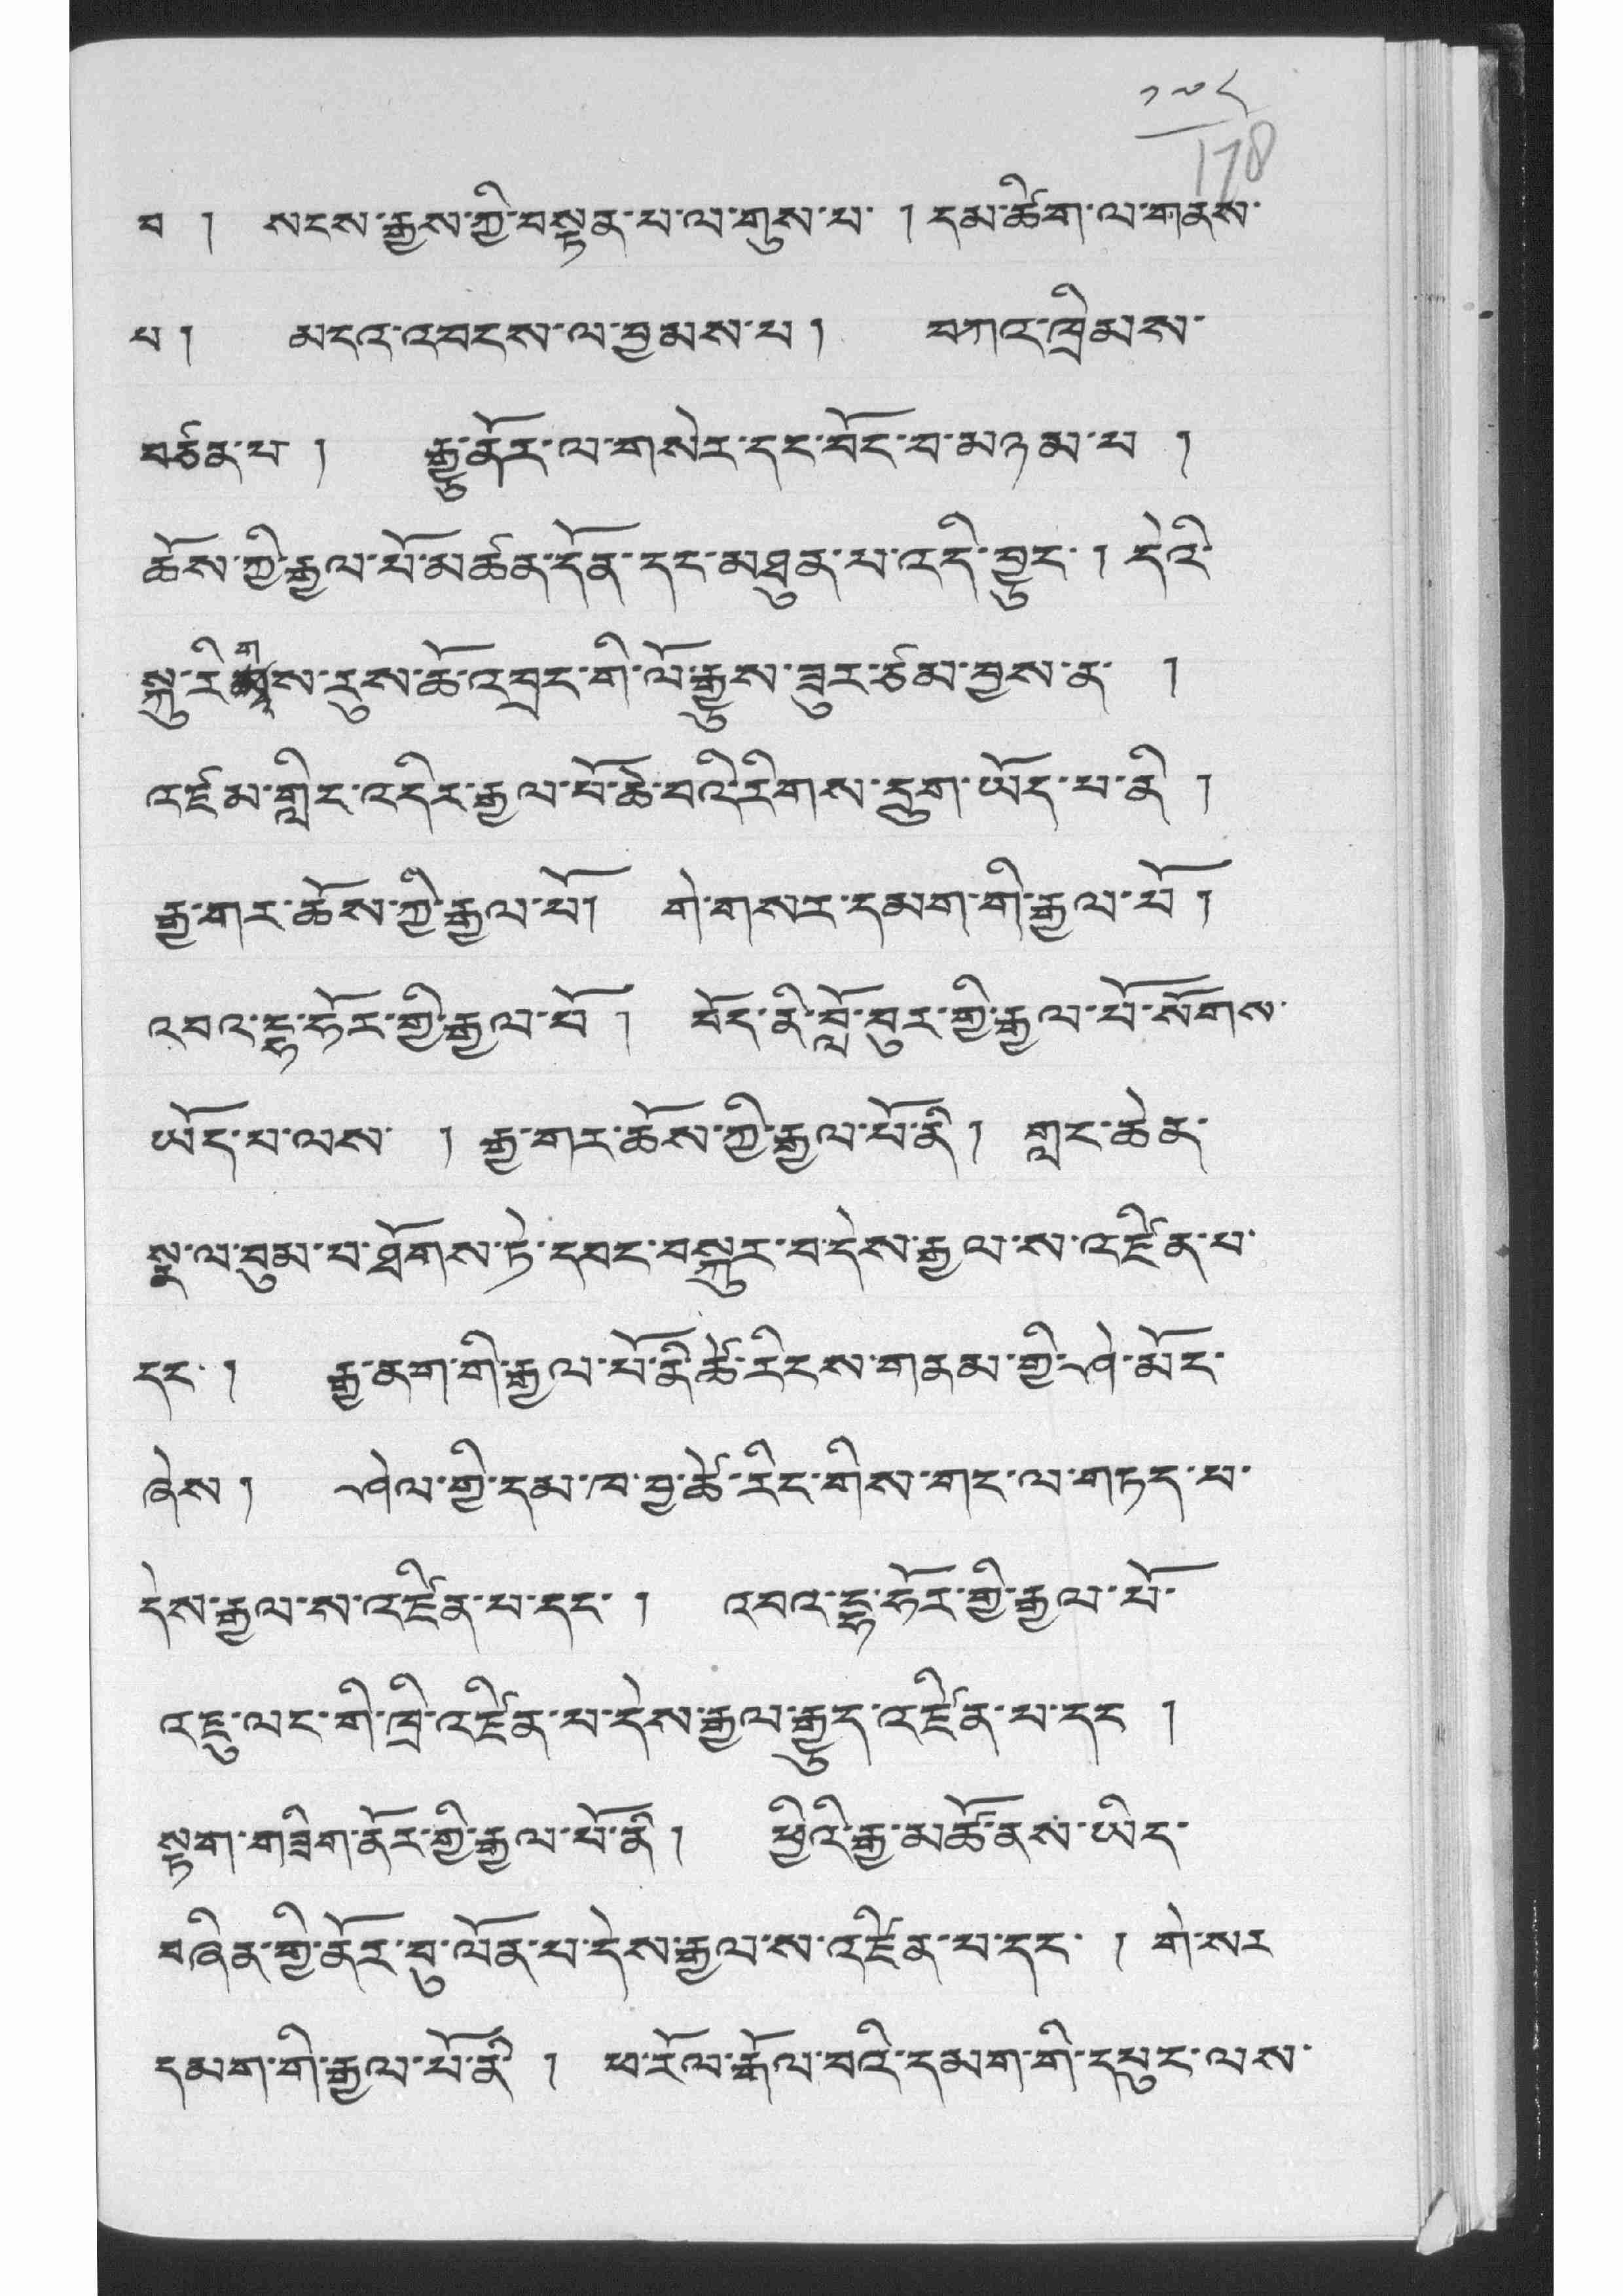 ༡༧༨
178
བ །  སངས་རྒྱས་ཀྱི་བསྟན་པ་ལ་གུས་པ་ །དམ་ཚིག་ལ་གནས་
པ །  མངའ་འབངས་ལ་བྱམས་པ །  བཀའ་ཁྲིམས་
བཙན་པ །  རྒྱུ་ནོར་ལ་གསེར་དང་བོང་བ་མཉམ་པ །
ཆོས་ཀྱི་རྒྱལ་པོ་མཚན་དོན་དང་མཐུན་པ་འདི་བྱུང་ །དེའི་
སྐུ་རིགས་རུས་ཆོ་འབྲང་གི་ལོ་རྒྱུས་ཟུར་ཙམ་བྱས་ན་ །
འཛམ་གླིང་འདིར་རྒྱལ་པོ་ཆེ་བའི་རིགས་དྲུག་ཡོད་པ་ནི །
རྒྱ་གར་ཆོས་ཀྱི་རྒྱལ་པོ། གེ་གསར་དམག་གི་རྒྱལ་པོ །
འབའ་ཧྟ་ཧོར་གྱི་རྒྱལ་པོ །  བོད་ནི་བློ་བུར་གྱི་རྒྱལ་པོ་སོགས་
ཡོད་པ་ལས་ །རྒྱ་གར་ཆོས་ཀྱི་རྒྱལ་པོ་ནི །  གླང་ཆེན་
སྣ་ལ་བུམ་པ་ཐོགས་ཏེ་དབང་བསྐུར་བ་དེས་རྒྱལ་ས་འཛིན་པ་
དང་ །  རྒྱ་ནག་གི་རྒྱལ་པོ་ནི་ཚེ་རིངས་གནམ་གྱི་ཤེ་མོང་
ཞེས །  ཤེལ་གྱི་དམ་ཁ་བྱ་ཚེ་རིང་གིས་གང་ལ་གཏད་པ་
དེས་རྒྱལ་ས་འཛིན་པ་དང་ །  འབའ་ཧྟ་ཧོར་གྱི་རྒྱལ་པོ་
འཇུ་ལང་གི་ཁྲི་འཛིན་པ་དེས་རྒྱལ་རྒྱུད་འཛིན་པ་དང །
སྟག་གཟིག་ནོར་གྱི་རྒྱལ་པོ་ནི །  ཕྱིའི་རྒྱ་མཚོ་ནས་ཡིད་
བཞིན་གྱི་ནོར་བུ་ལོན་པ་དེས་རྒྱལ་ས་འཛིན་པ་དང་ ། གེ་སར
དམག་གི་རྒྱལ་པོ་ནི །  ཕ་རོལ་རྒོལ་བའི་དམག་གི་དཔུང་ལས་